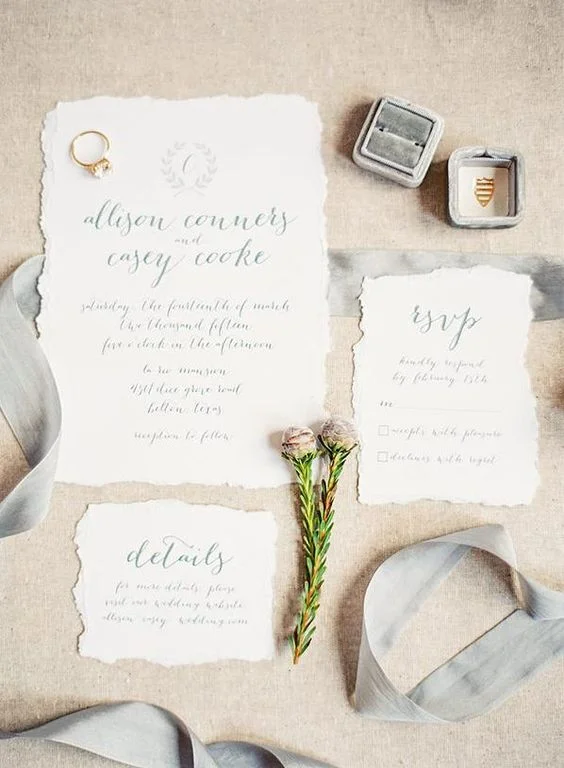 C
allison conners
and
casey cooke
saturday, the fourteenth of march
two thousand fifteen
five o'clock in the afternoon
la rio mansion
grove road
belton, texas
reception to follow
rsvp
kindly respond
by february 15th
m
accepts with pleasure
declines with regret
details
for more details, please
visit our wedding website
allison casey wedding.com